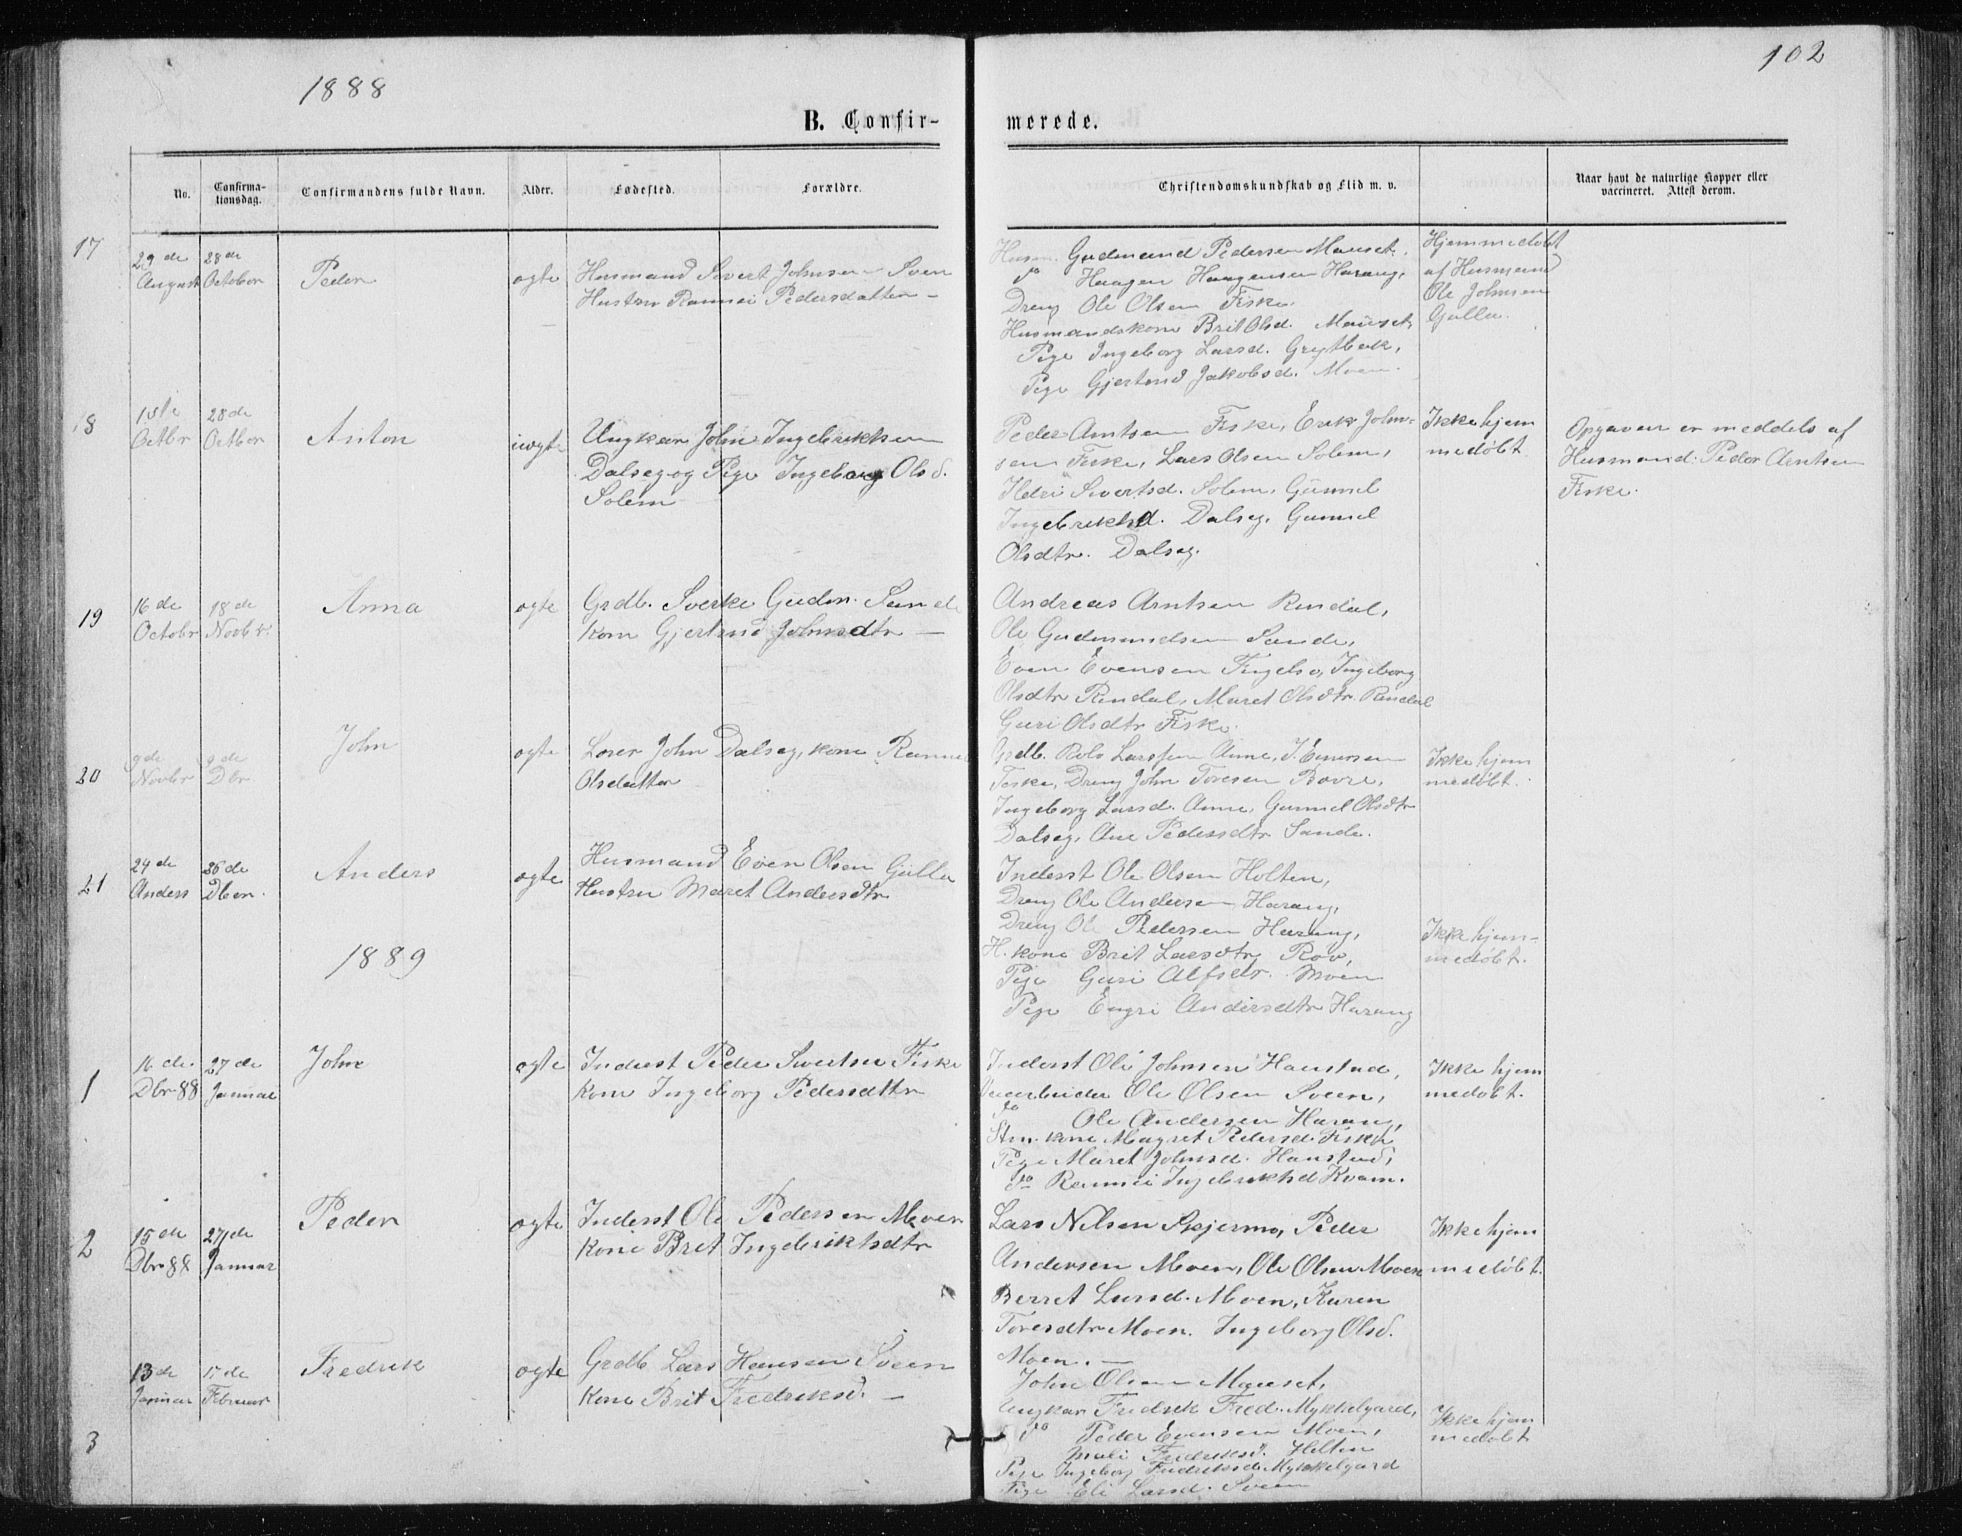 1888
102
B. Confir-
merede.
No.
Confirma-
tionsdag.
Confirmandens fulde Navn.
Alder.
Fødested.
Forældre.
Christendomskundskab og Flid m. v.
Naar havt de naturlige Kopper eller
vaccineret. Attest derom.
17
29de 28de
August October Peder ogte Husmand Sivert Johnsen Sven
Hustru Pedersdatter –
Gudmund Pedersen Mauset.
do Haagen Haagensen Harang,
Dreng Ole Olsen Fiske.
Husmandskone Brit Olsd. Mauset,
Pige Ingeborg Larsd. Grytbak,
Pige Gjertrud Jakobsd. Moen.
Hjemmedøbt
af Husmand
Ole Johnsen
Gulla.
18
1ste 28de
Octbr Octbor Anton uogte Ungkar John Ingebrikhsen
Dalseg og Pige Ingeborg Olsd.
Solem
Peder Arntsen Fiske, Erik John-
sen Fiske, Lars Olsen Solem,
Sivertsd. Solem, Gunnel
Ingebrikhsd. Dalseg, Gunnel
Olsdtr. Dalseg.
Ikke hjem
medøbt
Opgaven er meddelt af
Husmand Peder Arntsen
Fiske.
19
16de 18de
Octobr Novbr. Anna ogte Grdb. Sverke Gudm. Sande
Kone Gjertrud Johnsdtr –
Andreas Arntsen Rindal,
Ole Gudmundsen Sande,
Even Evensen Tingelso, Ingeborg
Olsdtr Rindal, Maret Olsdtr Rindal
Guri Olsdtr Fiske.
20
9de 9de
Novbr Dbr John ogte Lærer John Dalseg, kone
Olsdatter
Grdb. Larssen
Fiske, Dreng John Toresen Bovre,
Ingeborg Larsd. Gunnel Olsdtr
Dalseg, Ane Pedersdtr Sande.
Ikke hjem
medøbt.
21
24de 26de
Anders Dbr. Anders ogte Husmand Even Olsen Gulla
Hustru Maret Andersdtr
Inderst Ole Olsen Holten,
Dreng Ole Andersen Harang,
Dreng Ole Pedersen Harang,
H. kone Brit Larsdtr Rov,
Pige Guri Alfsdtr. Moen
Pige Engri Andersdtr Harang
Ikke hjem-
medøbt.
1889
1
16de 27de
Dbr 88 Januar John ogte Inderst Peder Sivertsen Fiske
Kone Ingeborg Pedersdattr
Inderst Ole Johnsen Hanstad,
Ole Olsen Sveen,
do Ole Andersen Harang,
kone Magret Pedersd. Fiske,
Pige Maret Johnsd. Hanstad,
do Ingebrikhsd Kvam.
Ikke hjem
medøbt.
2
15de 27de
Dbr 88 Januar Peder ogte Inderst Ole Pedersen Moen
Kone Brit Ingebriktsdtr
Lars Nilsen Skjermo, Peder
Andersen Moen, Ole Olsen Moen
Berret Larsd. Moen, Karen
Toresdtr Moen. Ingeborg Olsd.
Moen. –
Ikke hjem
medøbt.
3
13de
Januar Februar Fredrik ogte Grdb Lars Hansen Sveen
Kone Brit Fredriksd. –
John Olsen Mauset,
Ungkar Fredrik Fred. Mykkelgard,
do Peder Evensen Moen,
Mali Fredriksd. Holten
Pige Ingeborg Fredriksd. Mykkelgard
Pige Eli Larsd. Sveen
Ikke hjem
medøbt